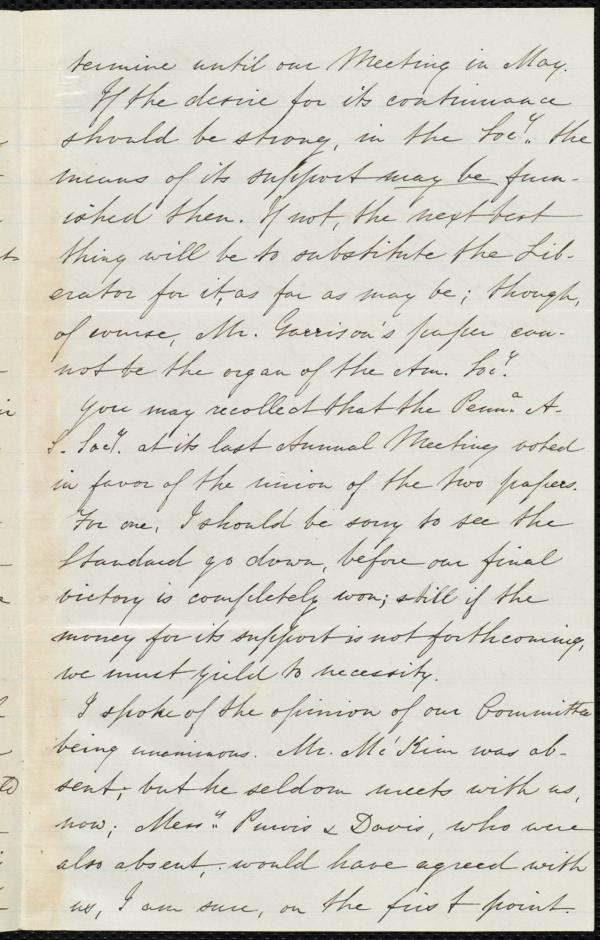 termine until our Meeting in May.
If the desire for its continuance
should be strong, in the Socy., the
means of its support may be furn-
ished then. If not, the next best
thing will be to substitute the Lib-
erator for it, as far as may be; though,
of course, Mr. Garrison's paper can-
not be the organ of the Am. Socy.
You may recollect that the Penna. A-
S. Socy. at its last Annual Meeting voted
in favor of the union of the two papers.
For one, I should be sorry to see the
Standard go down, before our final
victory is completely won; still if the
money for its support is not forthcoming,
we must yield to necessity.
I spoke of the opinion of our Committee
being unanimous. Mr. McKim was ab-
sent; but he seldom meets with us,
now; Messrs. Purvis & Davis, who were
also absent, would have agreed with
us, I am sure, on the first point.